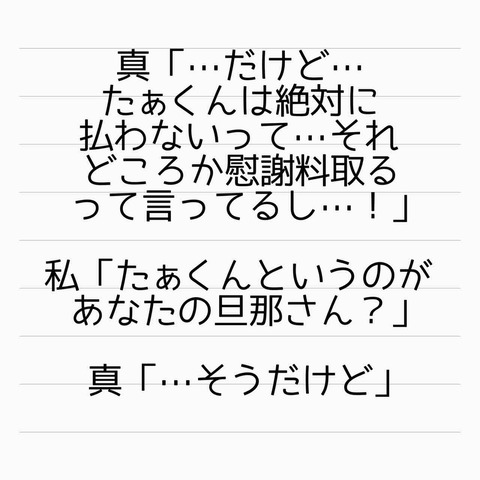 真「…だけど…
たぁくんは絶対に
払わないって…それ
どころか慰謝料取る
って言ってるし…！」
私「たぁくんというのが
あなたの旦那さん？」
真「…そうだけど」